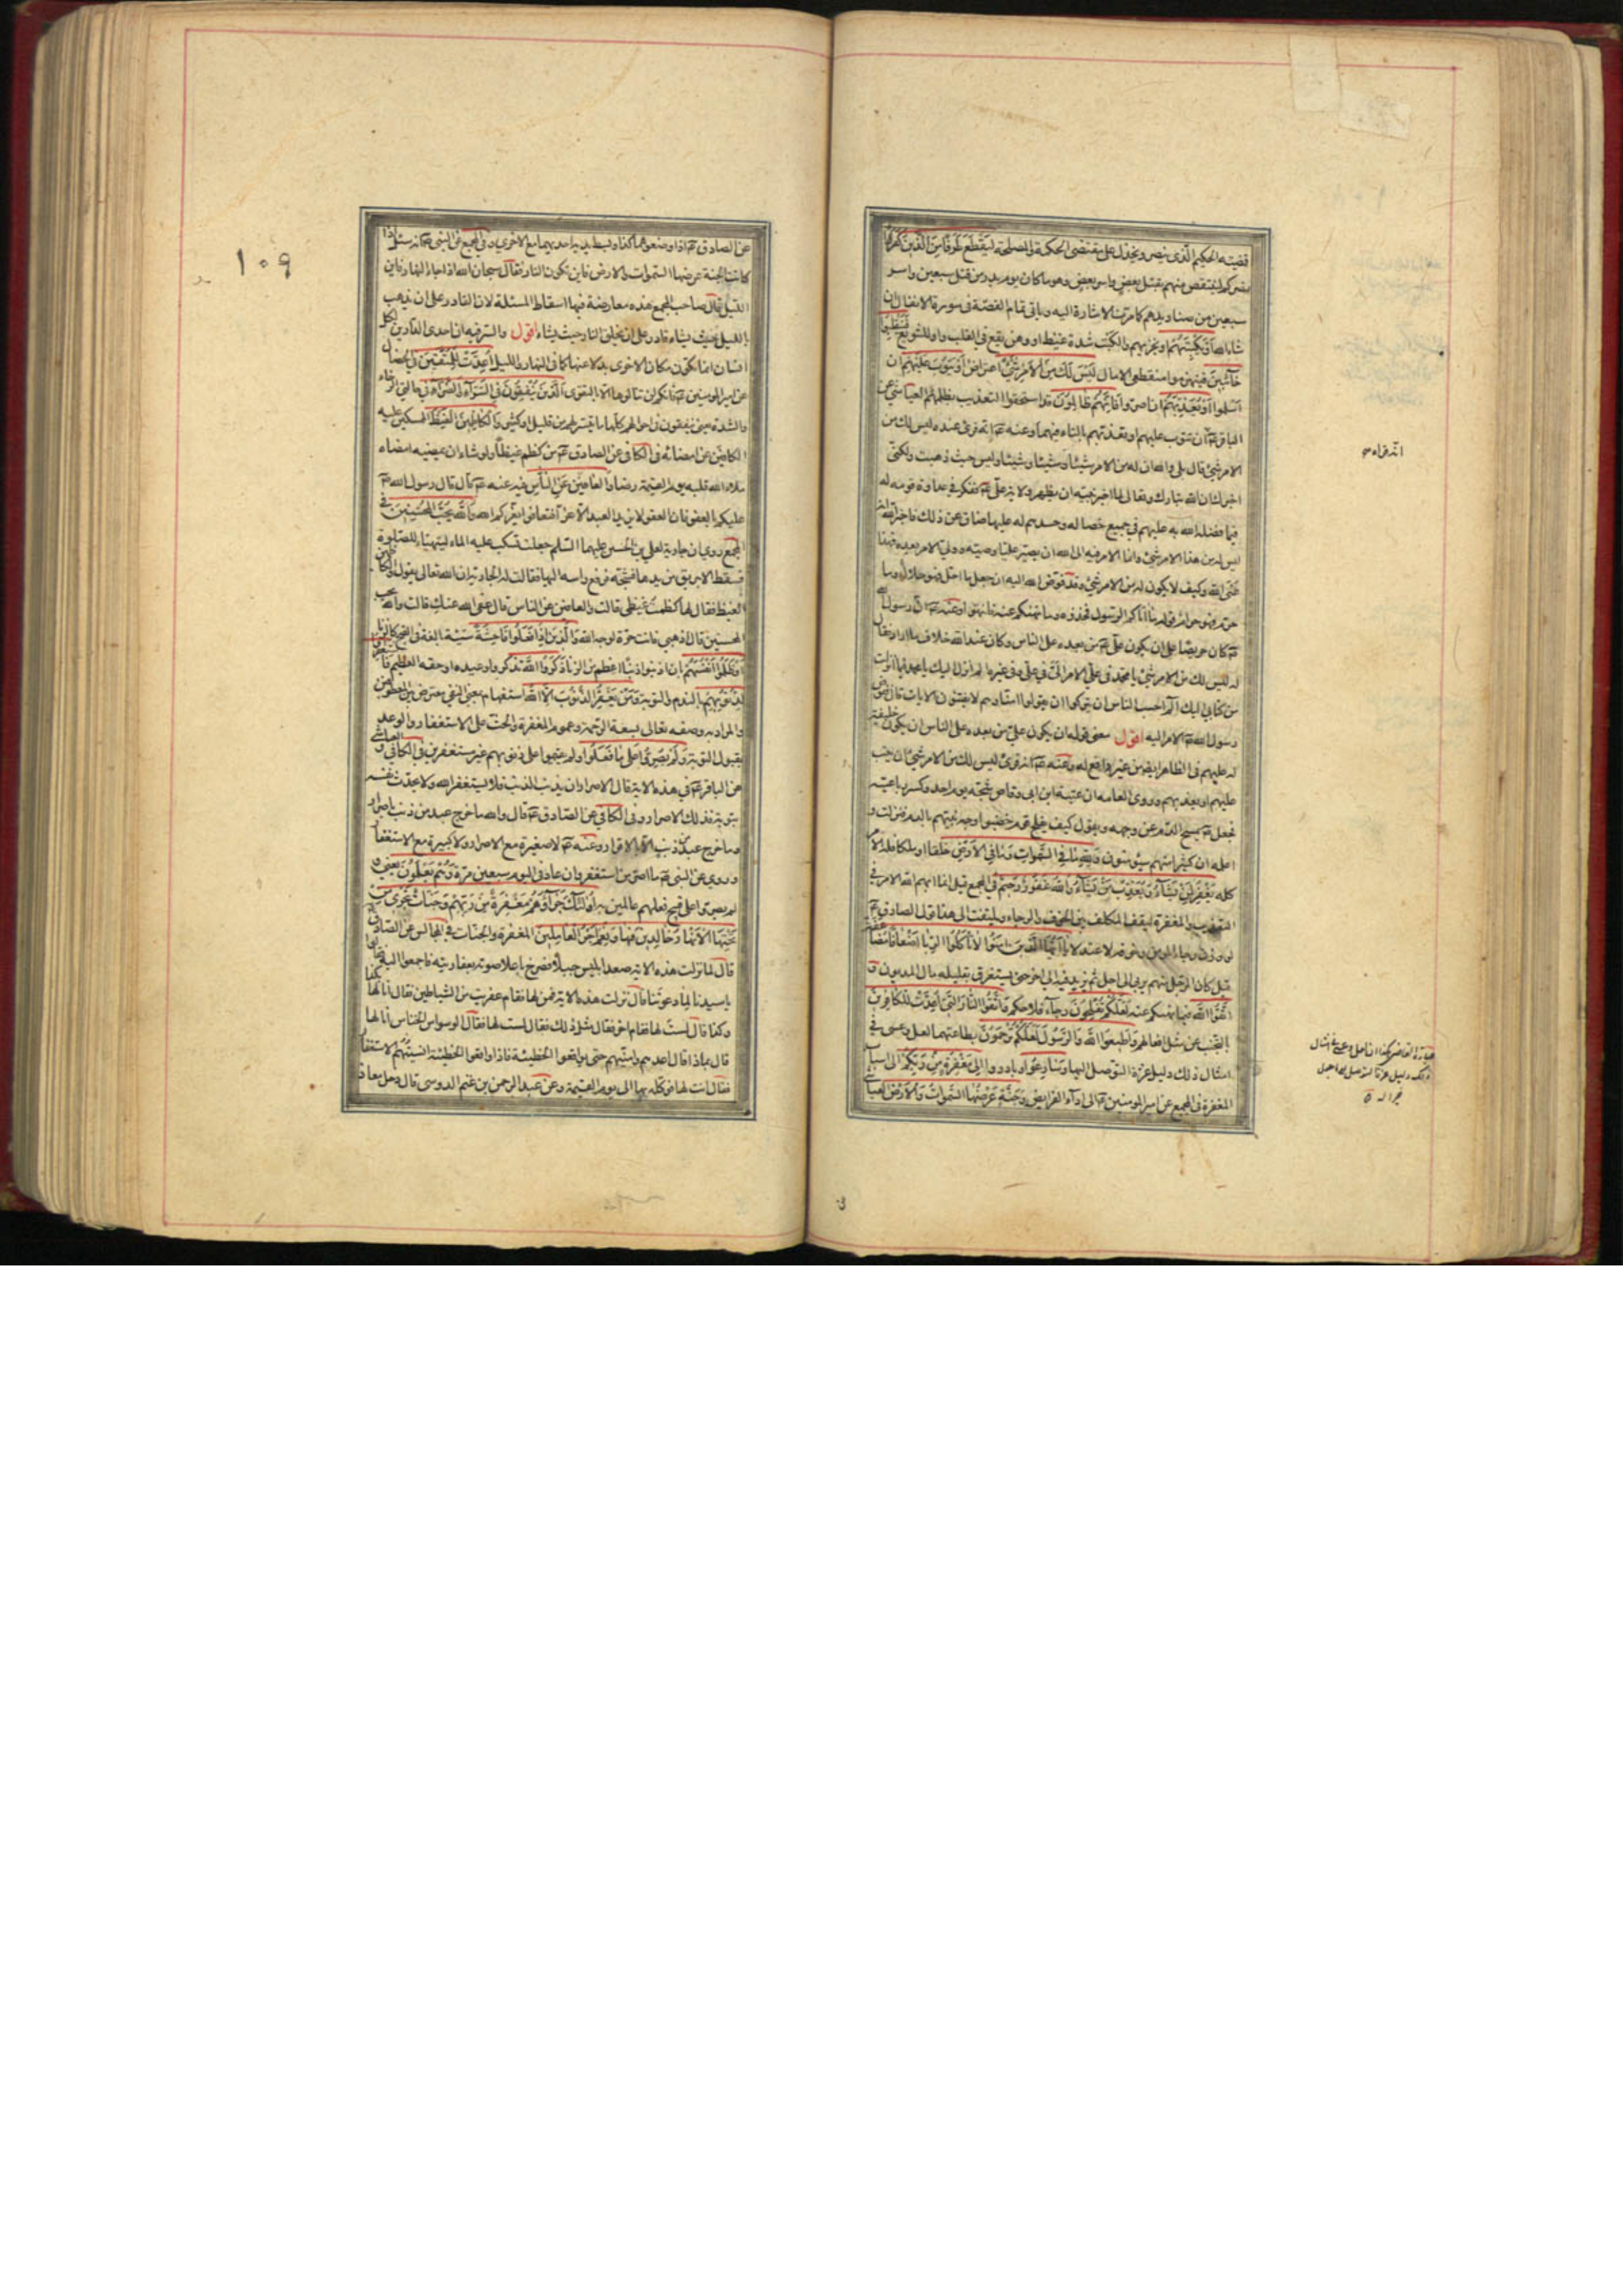 قضيته الحكيم الذى ينصر و يخذل على مقتضى الحكمة والمصلحة لِيَقْطَعَ طَرَفًا مِنَ الَّذِينَ كَفَرُوا
لينتقص منهم بقتل بعض واسر بعض وهو ما كان يوم بدر من قتل سبعين واسر
سبعين من صناديدهم كما مرت الاشارة اليه وياتى تمام القصة فى سورة الانفال ان
شاء الله أَوْ يَكْبِتَهُمْ او يخزيهم والكبت شدة غيظ او وهن يقع فى القلب واو للتنويع فَيَنْقَلِبُوا
خَائِبِينَ فينهزموا منقطعى الامال لَيْسَ لَكَ مِنَ الْأَمْرِ شَيْءٌ اعتراض أَوْ يَتُوبَ عَلَيْهِمْ ان
اسلموا أَوْ يُعَذِّبَهُمْ ان اصروا فَإِنَّهُمْ ظَالِمُونَ قد استحقوا التعذيب بظلمهم العياشى عن
الباقر ع ان تتوب عليهم او تعذبهم بالتاء فيهما وعنه ع انه قرئ عنده ليس لك من
الامر شئ قال بلى والله ان له من الامر شيئا وشيئا وشيئا وليس حيث ذهبت ولكنى
اخبرك ان الله تبارك وتعالى لما اخبر نبيه ان يظهر ولاية على ع ففكر فى عداوة قومه له
فيما فضله الله به عليهم فى جميع خصاله وحسدهم له عليها ضاق عن ذلك فاخبر الله انه
ليس له من هذا الامر شئ وانما الامر فيه الى الله ان يصير عليا وصيه وولى الامر بعده فهذا
عنى الله وكيف لا يكون له من الامر شئ وقد فوض الله اليه ان جعل ما احل فهو حلال وما
حرم فهو حرام قوله ما اتاكم الرسول فخذوه وما نهيكم عنه فانتهوا وعنه ع ان رسول الله
ص كان حريصا على ان يكون على ع من بعده على الناس وكان عند الله خلاف ما اراد فقال
له ليس لك من الامر شئ يا محمد فى على الامر الى فى على وفى غيره الم انزل اليك يا محمد فيما انزلت
من كتابى اليك الم احسب الناس ان يتركوا ان يقولوا امنا وهم لا يفتنون الايات قال ففوض
رسول الله ص الامر اليه اقول معنى قوله ان يكون على من بعده على الناس ان يكون خليفة
له عليهم فى الظاهر ايضا من غير دافع له وعنه ع انه قرئ ليس لك من الامر شئ ان يتب
عليهم او يعذبهم وروى العامه ان عتبة ابن ابى وقاص شجه يوم احد وكسر رباعيته
فجعل ص يمسح الدم عن وجهه ويقول كيف يفلح قوم خضبوا وجه نبيهم بالدم فنزلت و
اعلمه ان كثيرا منهم سيؤمنون وَلِلَّهِ مَا فِي السَّمَوَاتِ وَمَا فِي الْأَرْضِ خلقا وملكا فله الامر
كله يَغْفِرُ لِمَنْ يَشَاءُ وَيُعَذِّبُ مَنْ يَشَاءُ وَاللَّهُ غَفُورٌ رَحِيمٌ فى المجمع قيل انما ابهم الله الامر فى
التعذيب والمغفرة ليقف المكلف بين الخوف والرجاء ويلتفت الى هذا قول الصادق ع
لو وزن رجاء المومن وخوفه لاعتدلا يَا أَيُّهَا الَّذِينَ آمَنُوا لَا تَأْكُلُوا الرِّبَا أَضْعَافًا مُضَاعَفَةً
قيل كان الرجل منهم يربى الى اجل ثم يزيد فيه الى اخر حتى يستغرق بقليله مال المديون وَ
اتَّقُوا اللَّهَ فيما نهيتكم عنه لَعَلَّكُمْ تُفْلِحُونَ رجاء فلاحكم وَاتَّقُوا النَّارَ الَّتِي أُعِدَّتْ لِلْكَافِرِينَ
بالتجنب عن مثل افعالهم وَأَطِيعُوا اللَّهَ وَالرَّسُولَ لَعَلَّكُمْ تُرْحَمُونَ بطاعتهما لعل وعسى فى
امثال ذلك دليل عزة التوصل اليها وَسَارِعُوا وبادروا إِلَى مَغْفِرَةٍ مِنْ رَبِّكُمْ الى سباب
المغفرة فى المجمع عن امير المومنين ع الى اداء الفرايض وَجَنَّةٍ عَرْضُهَا السَّمَوَاتُ وَالْأَرْضُ العياشى
انه قراء
عن الصادق ع اذا وضعوهما كذا وبسط يديه احديهما مع الاخرى وفى المجمع عن النبى ص انه سئل اذا
كانت الجنة عرضها السموات والارض فاين تكون النار فقال سبحان الله اذا جاء النهار فاين
الليل قال صاحب المجمع هذه معارضة فيها اسقاط المسئلة لان القادر على ان يذهب
بالليل حيث يشاء قادر على ان يخلق النار حيث يشاء اقول والسر فيه ان احدى الدارين لكل
انسان انما تكون مكان الاخرى بدلا عنها كما فى النهار والليل أُعِدَّتْ لِلْمُتَّقِينَ فى الخصال
عن امير المومنين ع فانكم لن تنالوها الا بالتقوى الَّذِينَ يُنْفِقُونَ فِي السَّرَّاءِ وَالضَّرَّاءِ فى حالتى الرخاء
والشدة يعنى ينفقون فى احوالهم كلها ما تيسر لهم من قليل او كثير وَالْكَاظِمِينَ الْغَيْظَ الممسكين عليه
الكافين عن امضائه فى الكافى عن الصادق ع من كظم غيظا ولو شاء ان يمضيه امضاه
ملاء الله قلبه يوم القيمة رضاه وَالْعَافِينَ عَنِ النَّاسِ فيه عنه ع قال قال رسول الله ص
عليكم بالعفو فان العفو لا يزيد العبد الا عزا فتعافوا يعزكم الله وَاللَّهُ يُحِبُّ الْمُحْسِنِينَ فى
المجمع روى ان جارية لعلى بن الحسين عليهما السلم جعلت تسكب عليه الماء ليتهياء للصلوة
فسقط الابريق من يدها فشجه فرفع راسه اليها فقالت له الجارية ان الله تعالى يقول والكاظمين
الغيظ فقال لها كظمت غيظى قالت والعافين عن الناس قال عفى الله عنك قالت والله يحب
المحسنين قال اذهبى فانت حرة لوجه الله وَالَّذِينَ إِذَا فَعَلُوا فَاحِشَةً سيئة بالغة فى القبح كالزنا
أَوْ ظَلَمُوا أَنْفُسَهُمْ بان اذنبوا ذنبا اعظم من الزنا ذَكَرُوا اللَّهَ تذكروا وعيده او حقه العظيم فَاسْتَغْفَرُوا
لِذُنُوبِهِمْ بالندم والتوبة وَمَنْ يَغْفِرُ الذُّنُوبَ إِلَّا اللَّهُ استفهام بمعنى النفى معترض بين المعطوفين
والمراد به وصفه تعالى بسعة الرحمة وعموم المغفرة والحث على الاستغفار والوعد
بقبول التوبة وَلَمْ يُصِرُّوا عَلَى مَا فَعَلُوا ولم يقيموا على ذنوبهم غير مستغفرين فى الكافى والعياشى
عن الباقر ع فى هذه الاية قال الاصرار ان يذنب الذنب فلا يستغفر الله ولا يحدث نفسه
بتوبة فذلك الاصرار وفى الكافى عن الصادق ع قال والله ما خرج عبد من ذنب باصرار
وما خرج عبد من ذنب الا بالاقرار وعنه ع لا صغيرة مع الاصرار ولا كبيرة مع الاستغفار
وروى عن النبى ص ما اصر من استغفر وان عاد فى اليوم سبعين مرة وَهُمْ يَعْلَمُونَ يعنى و
لم يصروا على قبيح فعلهم عالمين به أُولَئِكَ جَزَاؤُهُمْ مَغْفِرَةٌ مِنْ رَبِّهِمْ وَجَنَّاتٌ تَجْرِي مِنْ
تَحْتِهَا الْأَنْهَارُ خَالِدِينَ فِيهَا وَنِعْمَ أَجْرُ الْعَامِلِينَ المغفرة والجنات فى المجالس عن الصادق ع
قال لما نزلت هذه الاية صعد ابليس جبلا فصرخ باعلا صوته بعفاريته فاجتمعوا اليه فقالوا
يا سيدنا لما دعوتنا قال نزلت هذه الاية فمن لها فقام عفريت من الشياطين فقال انا لها بكذا
وكذا قال لست لها فقام اخر فقال مثل ذلك فقال لست لها فقال الوسواس الخناس انا لها
قال بماذا قال اعدهم وامنيهم حتى يواقعوا الخطيئة فاذا واقعوا الخطيئة انسيتهم الاستغفار
فقال انت لها فوكله بها الى يوم القيمة وعن عبد الرحمن بن غنم الدوسى قال دخل معاذ
١٠٩